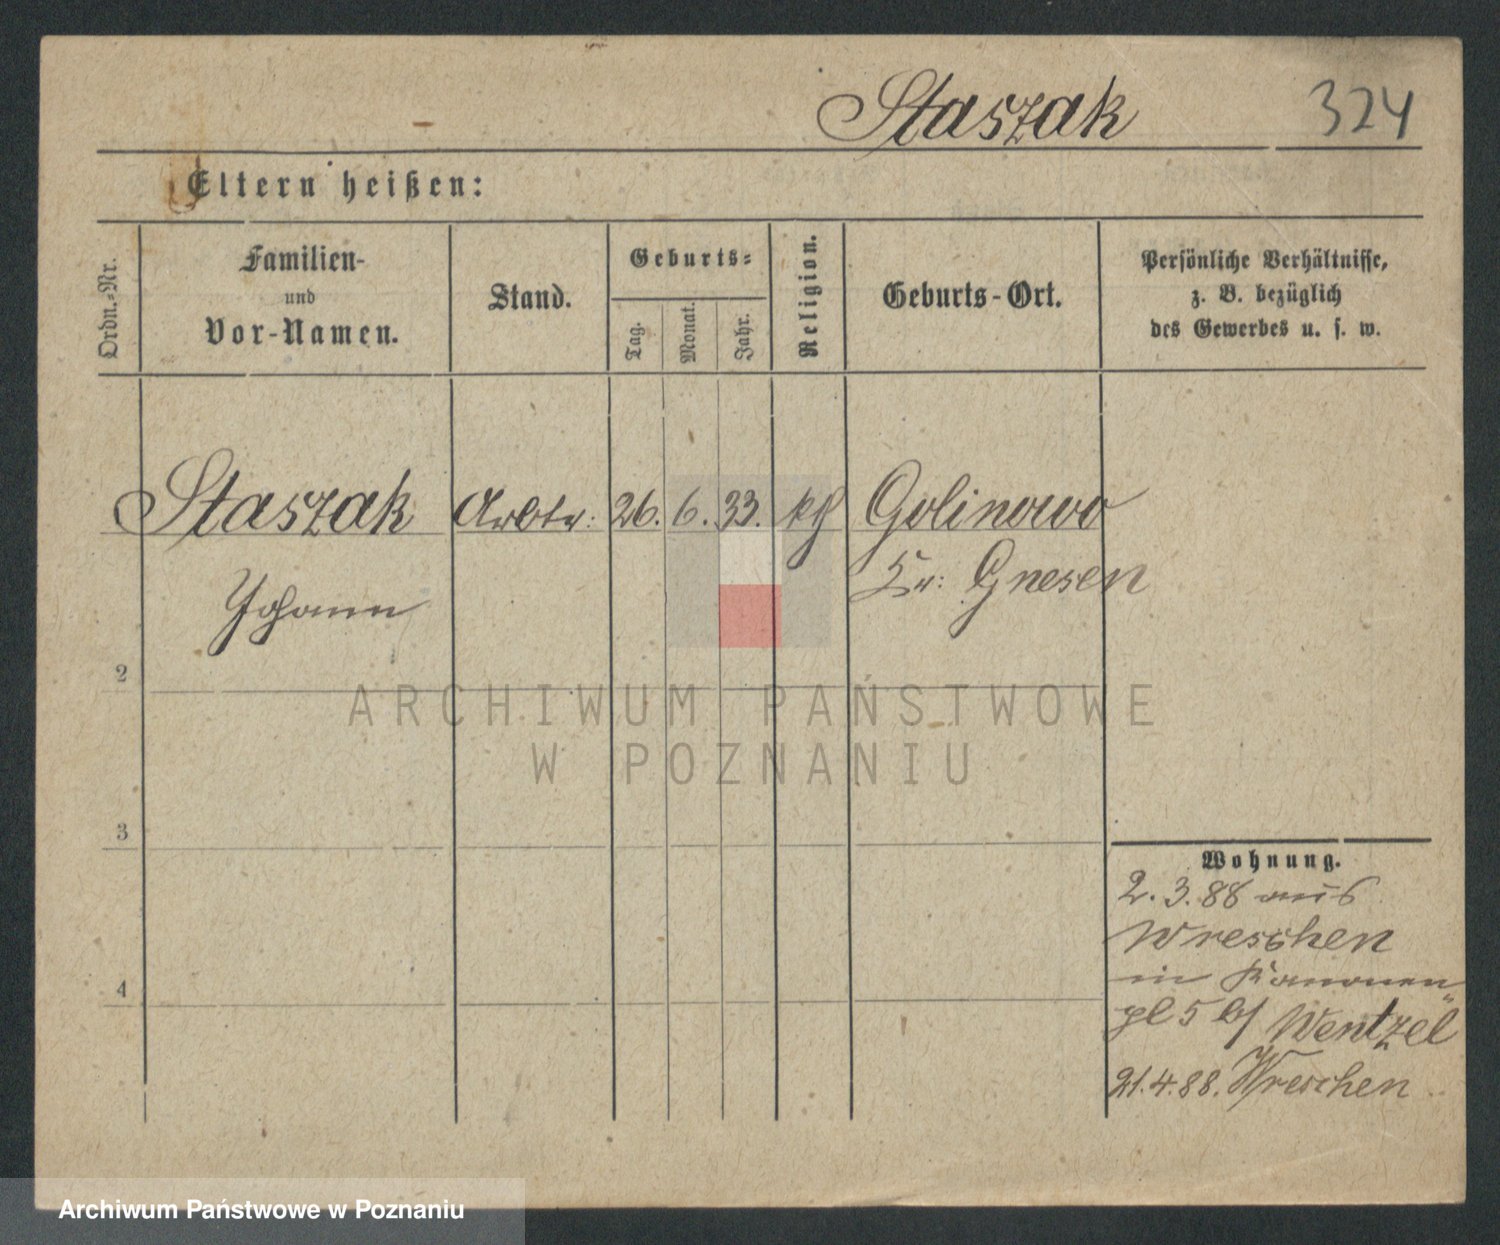 Staszak 324
Eltern heißen:
Ordn.-Nr.
Familien-
und
Vor-Namen.
Stand.
Geburts-
Tag.
Monat.
Jahr.
Religion.
Geburts-Ort.
Persönliche Verhältnisse,
z. B. bezüglich
des Gewerbes u. s. w.
Staszak Arbtr: 26. 6. 33. kth Golinowo
Kr: Gnesen
Johann
2
ARCHIWUM PAŃSTWOWE
W POZNANIU
3
4
Wohnung.
2.3.88 aus
Wreschen
in Kanonen-
pl 5 b/ Wentzel
21.4.88. Wreschen
Archiwum Państwowe w Poznaniu